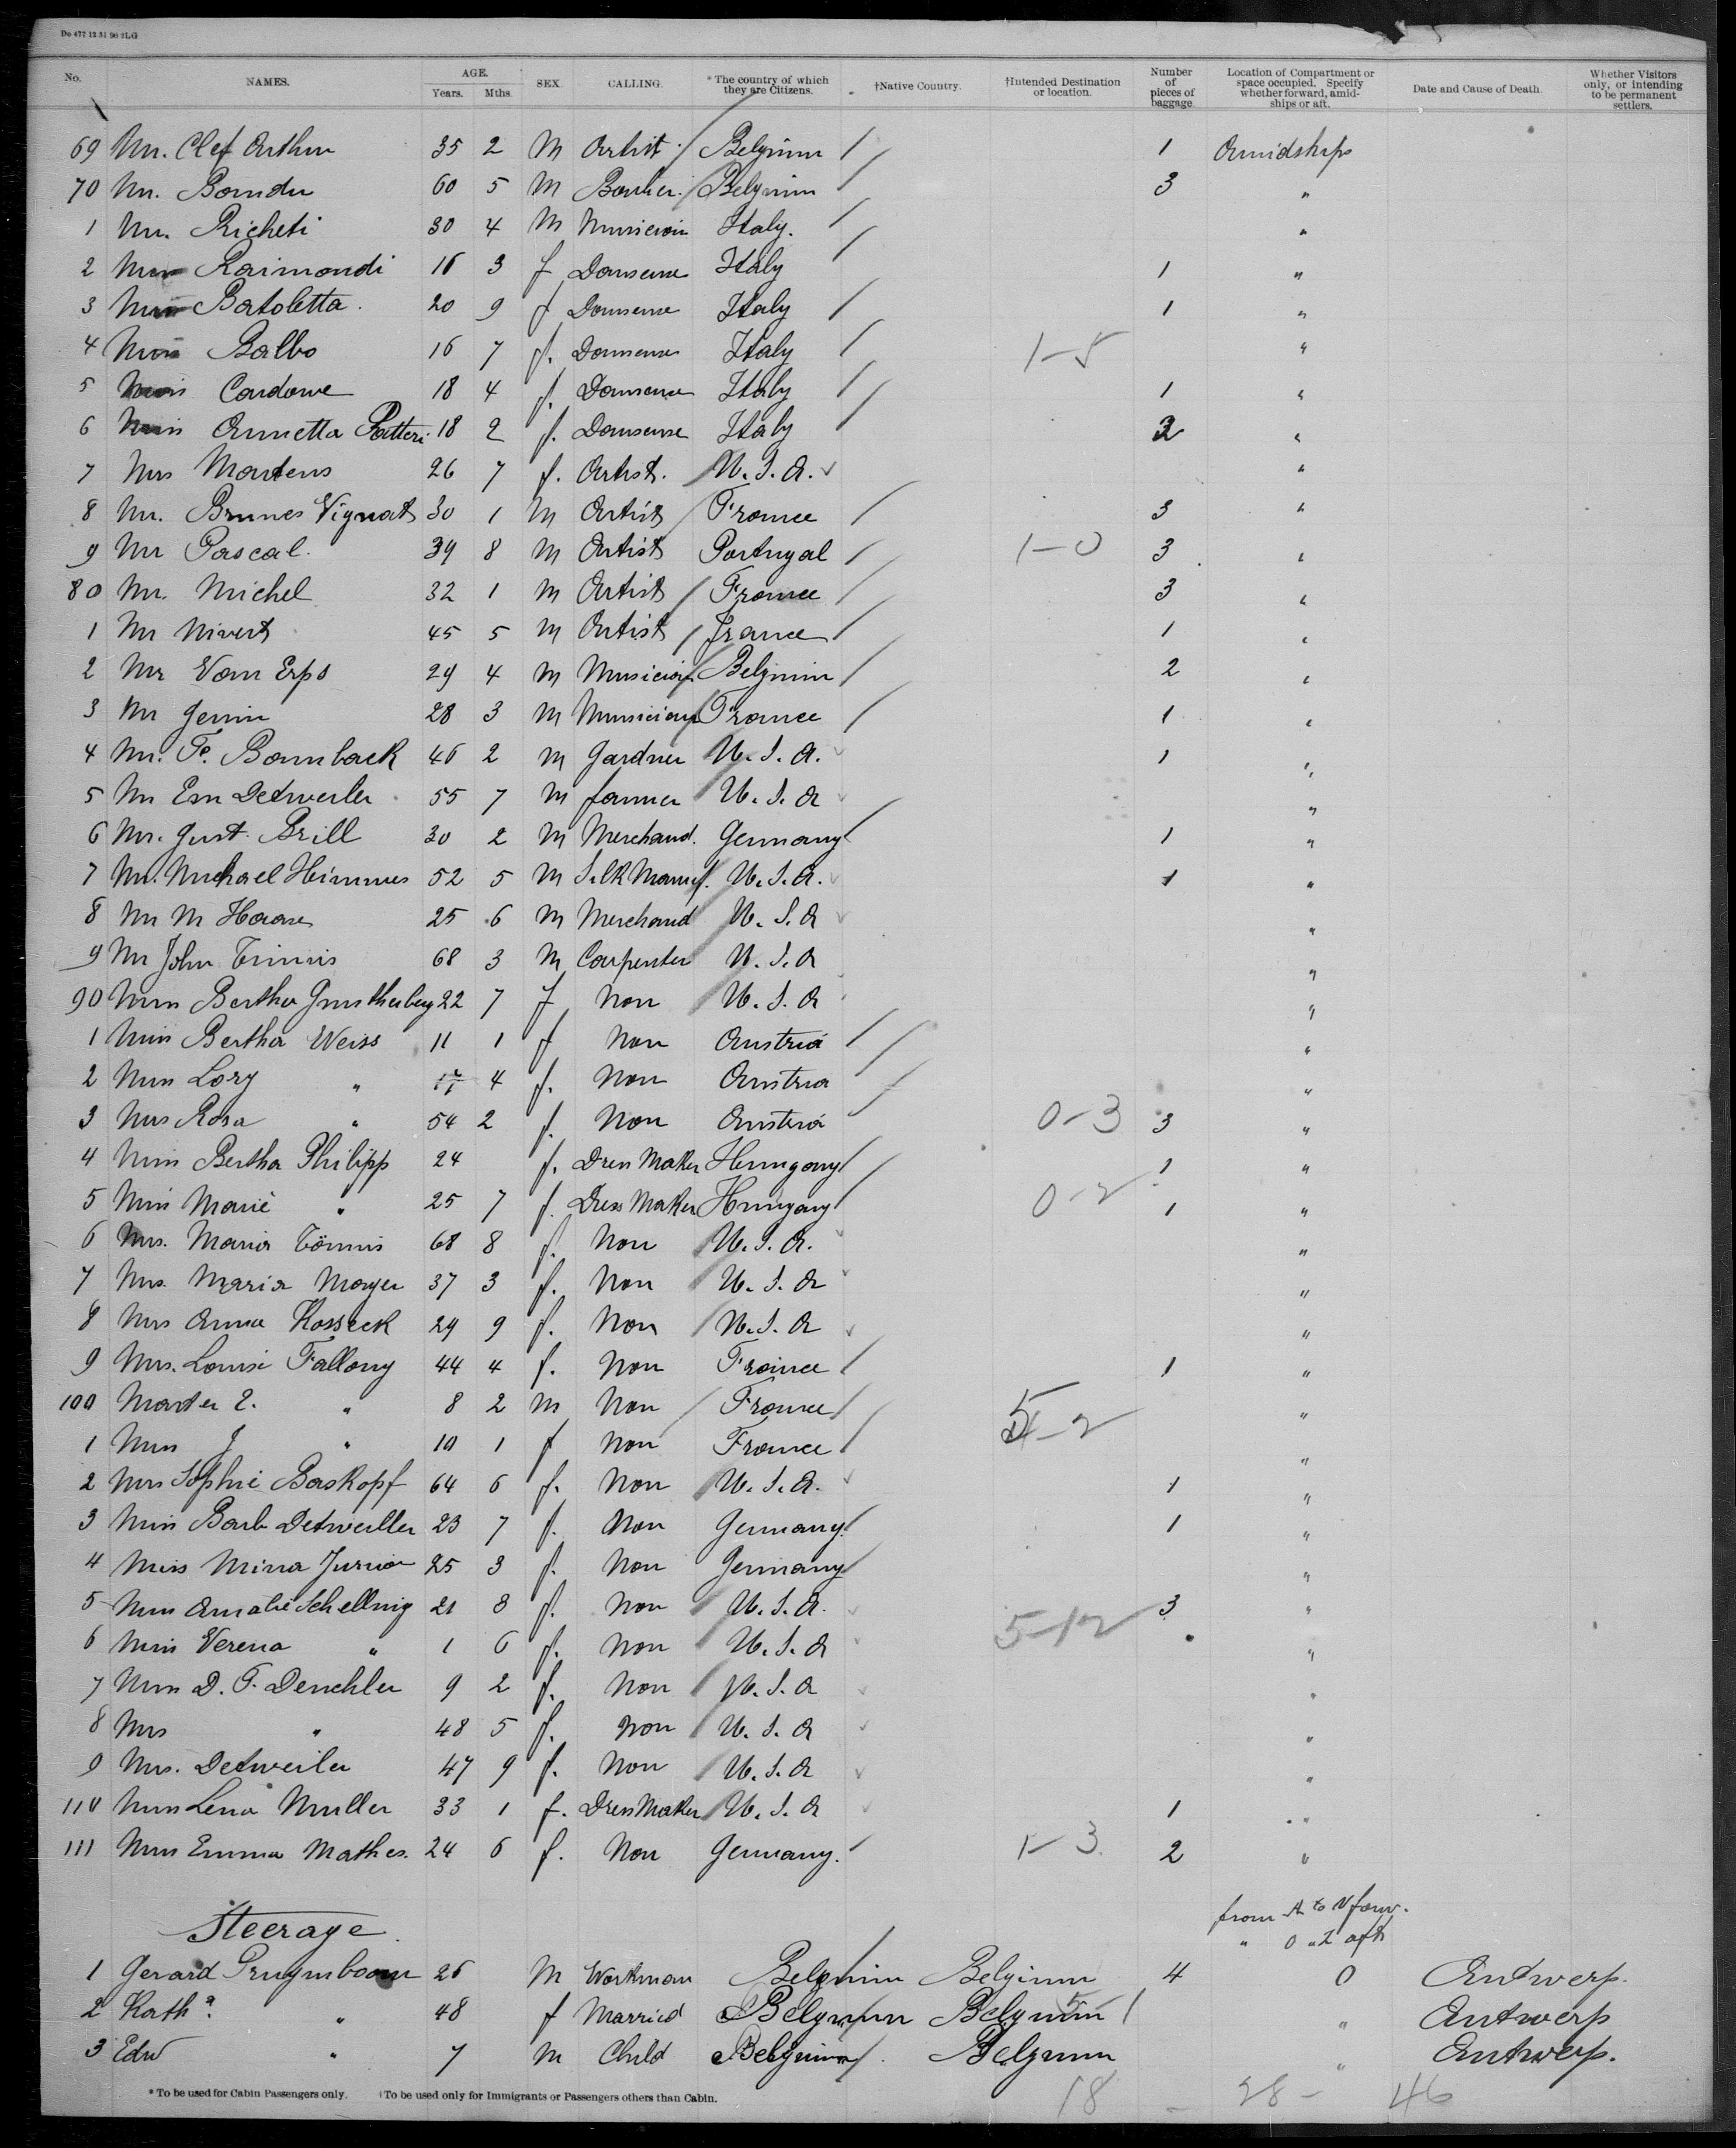 Do 477 12 31 90 2LG
No. NAMES. AGE. Years. Mths. SEX. CALLING. *The country of which they are Citizens. †Native Country. †Intended Destination or location. Number of pieces of baggage. Location of Compartment or space occupied. Specify whether forward, amidships or aft. Date and Cause of Death. Whether Visitors only, or intending to be permanent settlers.
69 Mr. Clef Arthur 35 2 M Artist Belgium 1 Amidships
70 Mr. 60 5 M Belgium 3 "
1 Mr. Richeti 30 4 M Musician Italy. "
2 Miss Raimondi 16 3 f Danseuse Italy 1 "
3 Miss Batoletta. 20 9 f Danseuse Italy 1 "
4 Miss Balbo 16 7 f. Danseuse Italy 1-5 "
5 Miss Cardone 18 4 f. Danseuse Italy 1 "
6 Miss Annetta Patteri 18 2 f. Danseuse Italy 2 "
7 Mrs Martens 26 7 f. Artist. U.S.A. "
8 Mr. Brunes Vignat 30 1 M Artist France 3 "
9 Mr Pascal. 39 8 M Artist Portugal 1-0 3 "
80 Mr. Michel 32 1 M Artist France 3 "
1 Mr Nivert 45 5 M Artist France 1 "
2 Mr Van Erps 29 4 M Musician Belgium 2 "
3 Mr Genin 28 3 M Musician France 1 "
4 Mr. Fe. Bambach 46 2 M Gardner U.S.A. 1 "
5 Mr Em Detweiler 55 7 M farmer U.S.A "
6 Mr. Gust. Brill 30 2 M Merchand. Germany 1 "
7 Mr. Michael Himmes 52 5 M Silk Manuf. U.S.A. 1 "
8 Mr M Haase 25 6 M Merchand U.S.A "
9 Mr John Tinnis 68 3 M Carpenter U.S.A "
90 Miss Bertha 22 7 f Non U.S.A "
1 Miss Bertha Weiss 11 1 f Non Austria "
2 Miss Lory " 17 4 f. Non Austria "
3 Mrs Rosa " 54 2 f. Non Austria 0-3 3 "
4 Miss Bertha Philipp 24 f. Dress Maker Hungary 1 "
5 Miss Marie " 25 7 f. Dress Maker Hungary 0-2 1 "
6 Mrs. Maria Tönnis 68 8 f. Non U.S.A. "
7 Mrs. Maria Mayer 37 3 f. Non U.S.A "
8 Mrs Anna Kosseck 29 9 f. Non U.S.A "
9 Mrs. Louise Fallony 44 4 f. Non France 1 "
100 Master E. " 8 2 M Non France 5-2 "
1 Miss J " 10 1 f Non France "
2 Mrs Sophie Baskopf 64 6 f. Non U.S.A. 1 "
3 Miss Barb Detweiller 23 7 f. Non Germany. 1 "
4 Miss Mina Junior 25 3 f. Non Germany "
5 Miss Amalie Schellnig 21 8 f. Non U.S.A. 3 "
6 Miss Verena " 1 6 f. Non U.S.A 5-12 "
7 Miss D. F. Denchler 9 2 f. Non U.S.A "
8 Mrs " 48 5 f. Non U.S.A "
9 Mrs. Detweiler 47 9 f. Non U.S.A "
110 Miss Lena Muller 33 1 f. Dress Maker U.S.A 1 "
111 Miss Emma Mathes. 24 6 f. Non Germany. 1-3 2 "
from A to N forw.
Steerage. " O " Z aft
1 Gerard Pruymboom 26 M Workman Belgium Belgium 4 O Antwerp.
2 Kath a. " 48 f Married Belgium Belgium " Antwerp
3 Edw " 7 M Child Belgium Belgium " Antwerp.
*To be used for Cabin Passengers only. †To be used only for Immigrants or Passengers others than Cabin.
18 - 28 - 46